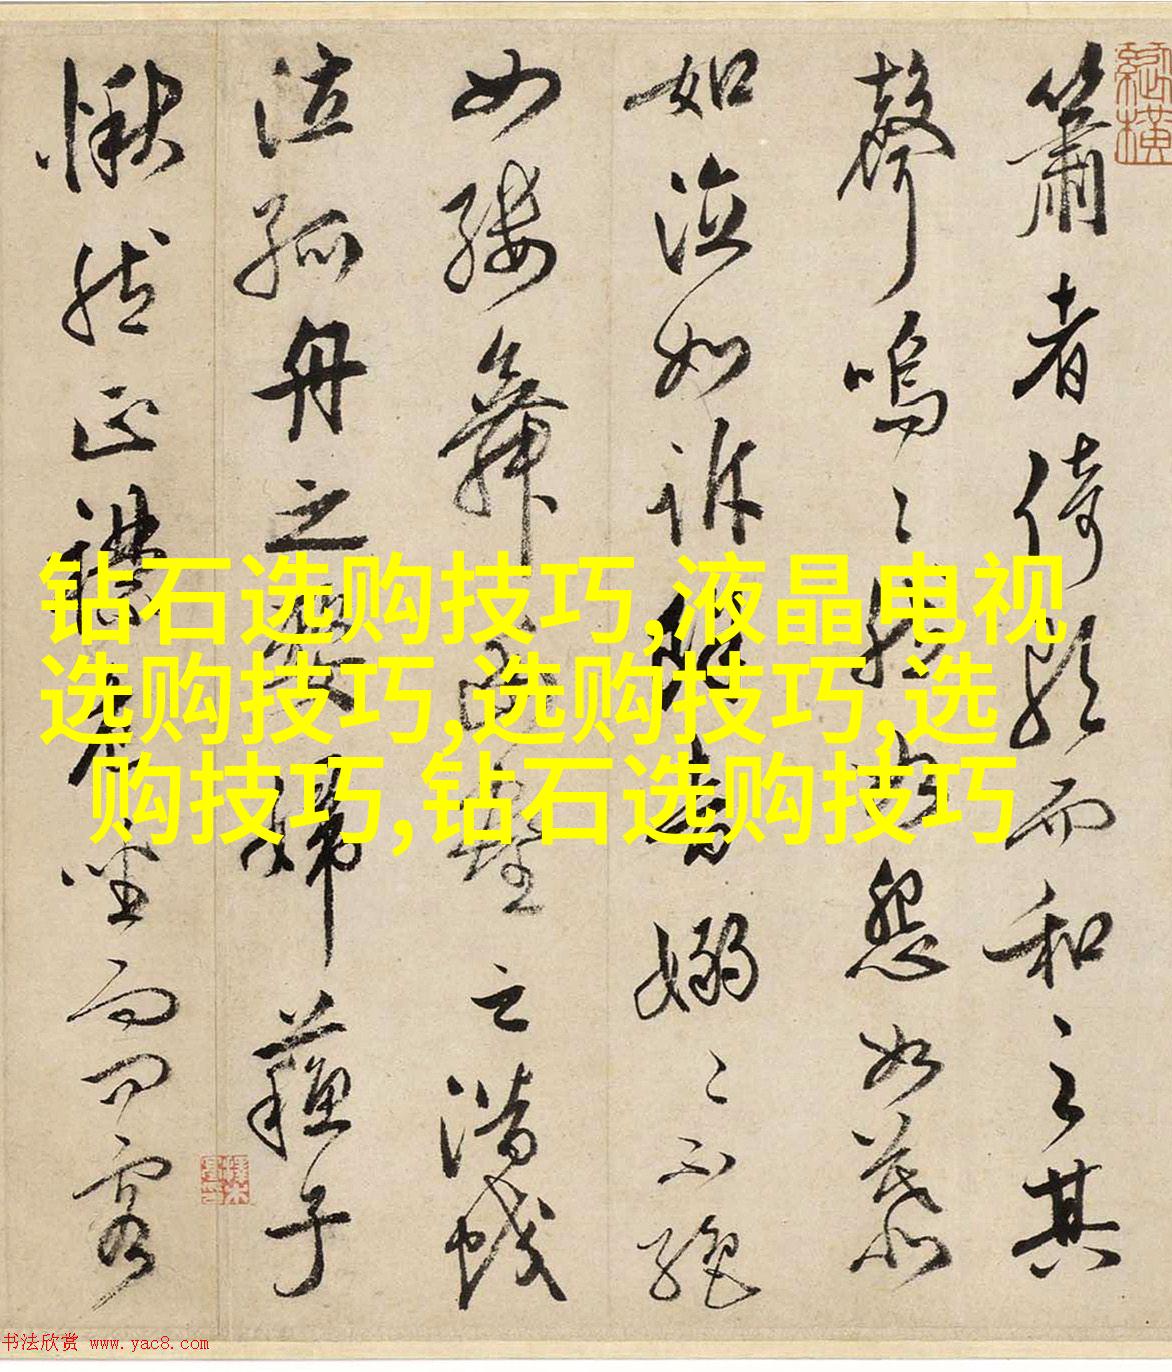 簫者倚歌而和之其
聲嗚〻然如怨如慕
如泣如訴餘音嫋〻不絕
如縷舞幽壑之潛蛟
泣孤舟之嫠婦蘓子
愀然正襟危坐而問客
钻石选购技巧,液晶电视
选购技巧,选购技巧,选
购技巧,钻石选购技巧
书法欣赏 www.yac8.com